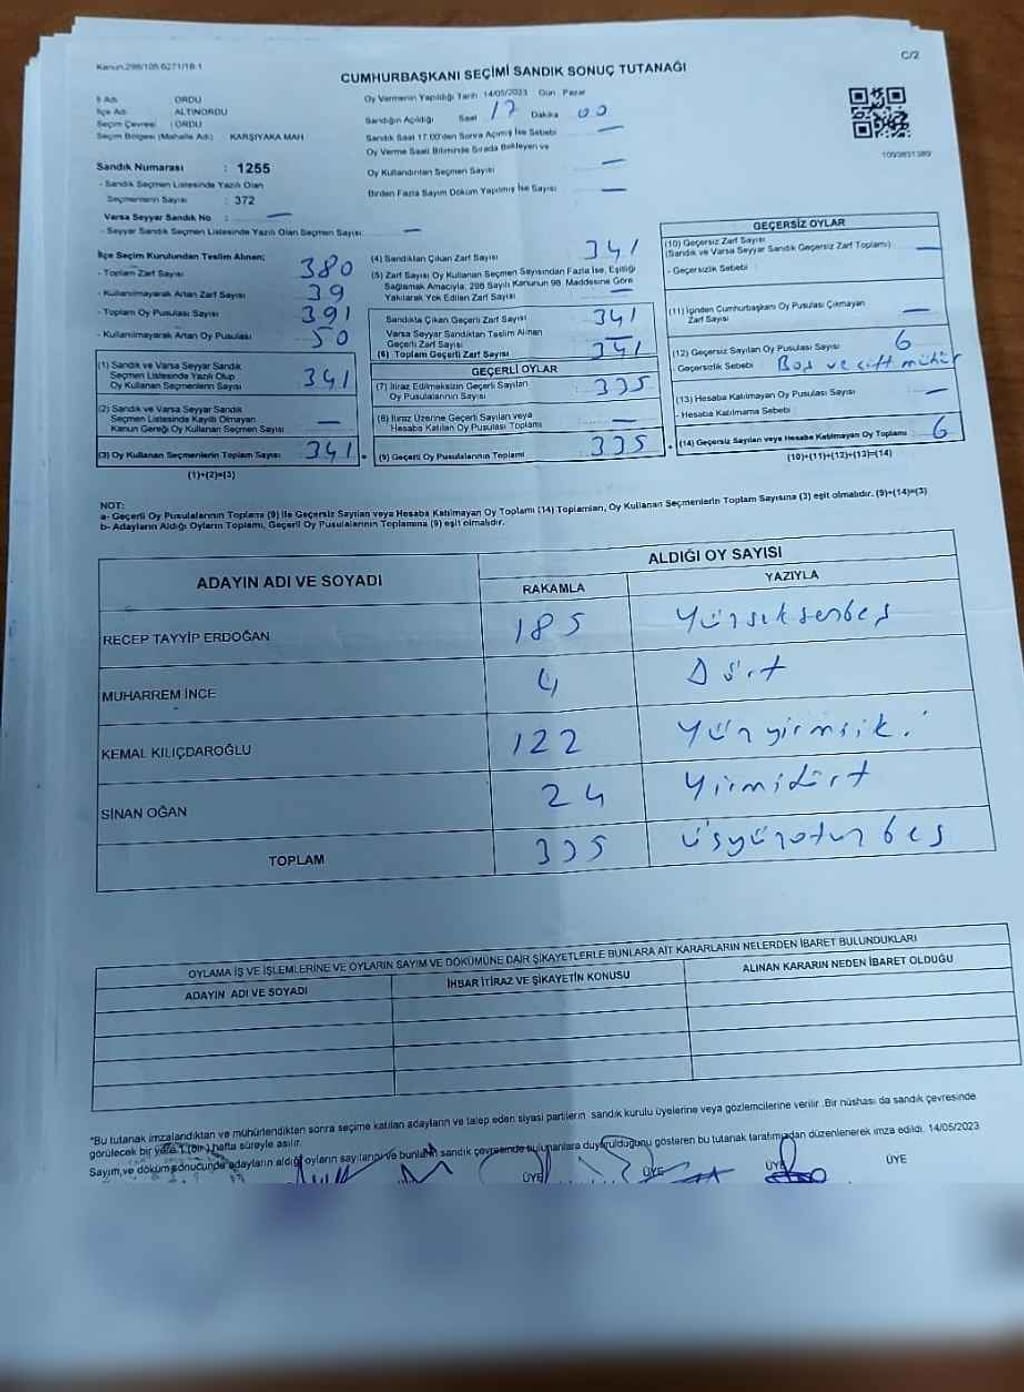 Kanun:298/105 6271/18.1
C/2
CUMHURBAŞKANI SEÇİMİ SANDIK SONUÇ TUTANAĞI
İl Adı : ORDU
İlçe Adı : ALTINORDU
Seçim Çevresi : ORDU
Seçim Bölgesi (Mahalle Adı) : KARŞIYAKA MAH
Oy Vermenin Yapıldığı Tarih 14/05/2023 Gün Pazar
Sandığın Açıldığı Saat 17 Dakika 00
Sandık Saat 17:00'den Sonra Açılmış İse Sebebi —
Oy Verme Saati Bitiminde Sırada Bekleyen ve
Oy Kullandırılan Seçmen Sayısı —
Birden Fazla Sayım Döküm Yapılmış İse Sayısı —
Sandık Numarası : 1255
- Sandık Seçmen Listesinde Yazılı Olan
Seçmenlerin Sayısı : 372
Varsa Seyyar Sandık No : —
- Seyyar Sandık Seçmen Listesinde Yazılı Olan Seçmen Sayısı: —
İlçe Seçim Kurulundan Teslim Alınan;
- Toplam Zarf Sayısı 380
- Kullanılmayarak Artan Zarf Sayısı 39
- Toplam Oy Pusulası Sayısı 391
- Kullanılmayarak Artan Oy Pusulası 50
(1) Sandık ve Varsa Seyyar Sandık
Seçmen Listesinde Yazılı Olup
Oy Kullanan Seçmenlerin Sayısı 341
(2) Sandık ve Varsa Seyyar Sandık
Seçmen Listesinde Kayıtlı Olmayan
Kanun Gereği Oy Kullanan Seçmen Sayısı —
(3) Oy Kullanan Seçmenlerin Toplam Sayısı 341
(1)+(2)=(3)
(4) Sandıktan Çıkan Zarf Sayısı 341
(5) Zarf Sayısı Oy Kullanan Seçmen Sayısından Fazla İse, Eşitliği
Sağlamak Amacıyla, 298 Sayılı Kanunun 98. Maddesine Göre
Yakılarak Yok Edilen Zarf Sayısı —
Sandıkta Çıkan Geçerli Zarf Sayısı 341
Varsa Seyyar Sandıktan Teslim Alınan
Geçerli Zarf Sayısı —
(6) Toplam Geçerli Zarf Sayısı 341
GEÇERLİ OYLAR
(7) İtiraz Edilmeksizin Geçerli Sayılan
Oy Pusulalarının Sayısı 335
(8) İtiraz Üzerine Geçerli Sayılan veya
Hesaba Katılan Oy Pusulası Toplamı —
(9) Geçerli Oy Pusulalarının Toplamı 335
GEÇERSİZ OYLAR
(10) Geçersiz Zarf Sayısı
(Sandık ve Varsa Seyyar Sandık Geçersiz Zarf Toplamı) —
- Geçersizlik Sebebi
(11) İçinden Cumhurbaşkanı Oy Pusulası Çıkmayan
Zarf Sayısı —
(12) Geçersiz Sayılan Oy Pusulası Sayısı 6
Geçersizlik Sebebi Boş ve çift mühür
(13) Hesaba Katılmayan Oy Pusulası Sayısı —
- Hesaba Katılmama Sebebi
(14) Geçersiz Sayılan veya Hesaba Katılmayan Oy Toplamı 6
(10)+(11)+(12)+(13)=(14)
NOT:
a- Geçerli Oy Pusulalarının Toplamı (9) ile Geçersiz Sayılan veya Hesaba Katılmayan Oy Toplamı (14) Toplamları, Oy Kullanan Seçmenlerin Toplam Sayısına (3) eşit olmalıdır. (9)+(14)=(3)
b- Adayların Aldığı Oyların Toplamı, Geçerli Oy Pusulalarının Toplamına (9) eşit olmalıdır.
ADAYIN ADI VE SOYADI
ALDIĞI OY SAYISI
RAKAMLA YAZIYLA
RECEP TAYYİP ERDOĞAN 185 Yüzseksenbeş
MUHARREM İNCE 4 Dört
KEMAL KILIÇDAROĞLU 122 Yüzyirmiiki
SİNAN OĞAN 24 Yirmidört
TOPLAM 335 Üçyüzotuzbeş
OYLAMA İŞ VE İŞLEMLERİNE VE OYLARIN SAYIM VE DÖKÜMÜNE DAİR ŞİKAYETLERLE BUNLARA AİT KARARLARIN NELERDEN İBARET BULUNDUKLARI
ADAYIN ADI VE SOYADI İHBAR İTİRAZ VE ŞİKAYETİN KONUSU ALINAN KARARIN NEDEN İBARET OLDUĞU
"Bu tutanak imzalandıktan ve mühürlendikten sonra seçime katılan adayların ve talep eden siyasi partilerin sandık kurulu üyelerine veya gözlemcilerine verilir .Bir nüshası da sandık çevresinde
görülecek bir yere 1 (bir) hafta süreyle asılır.
Sayım,ve döküm sonucunda adayların aldığı oyların sayılarını ve bunların sandık çevresinde bulunanlara duyurulduğunu gösteren bu tutanak tarafımızdan düzenlenerek imza edildi. 14/05/2023
ÜYE ÜYE ÜYE ÜYE